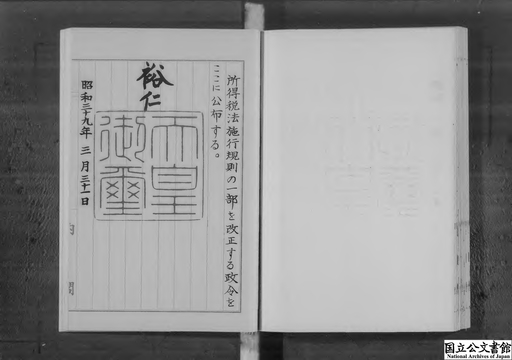 所得税法施行規則の一部を改正する政令を
ここに公布する。
裕仁
天皇
御璽
昭和三十九年三月三十一日
国立公文書館
National Archives of Japan